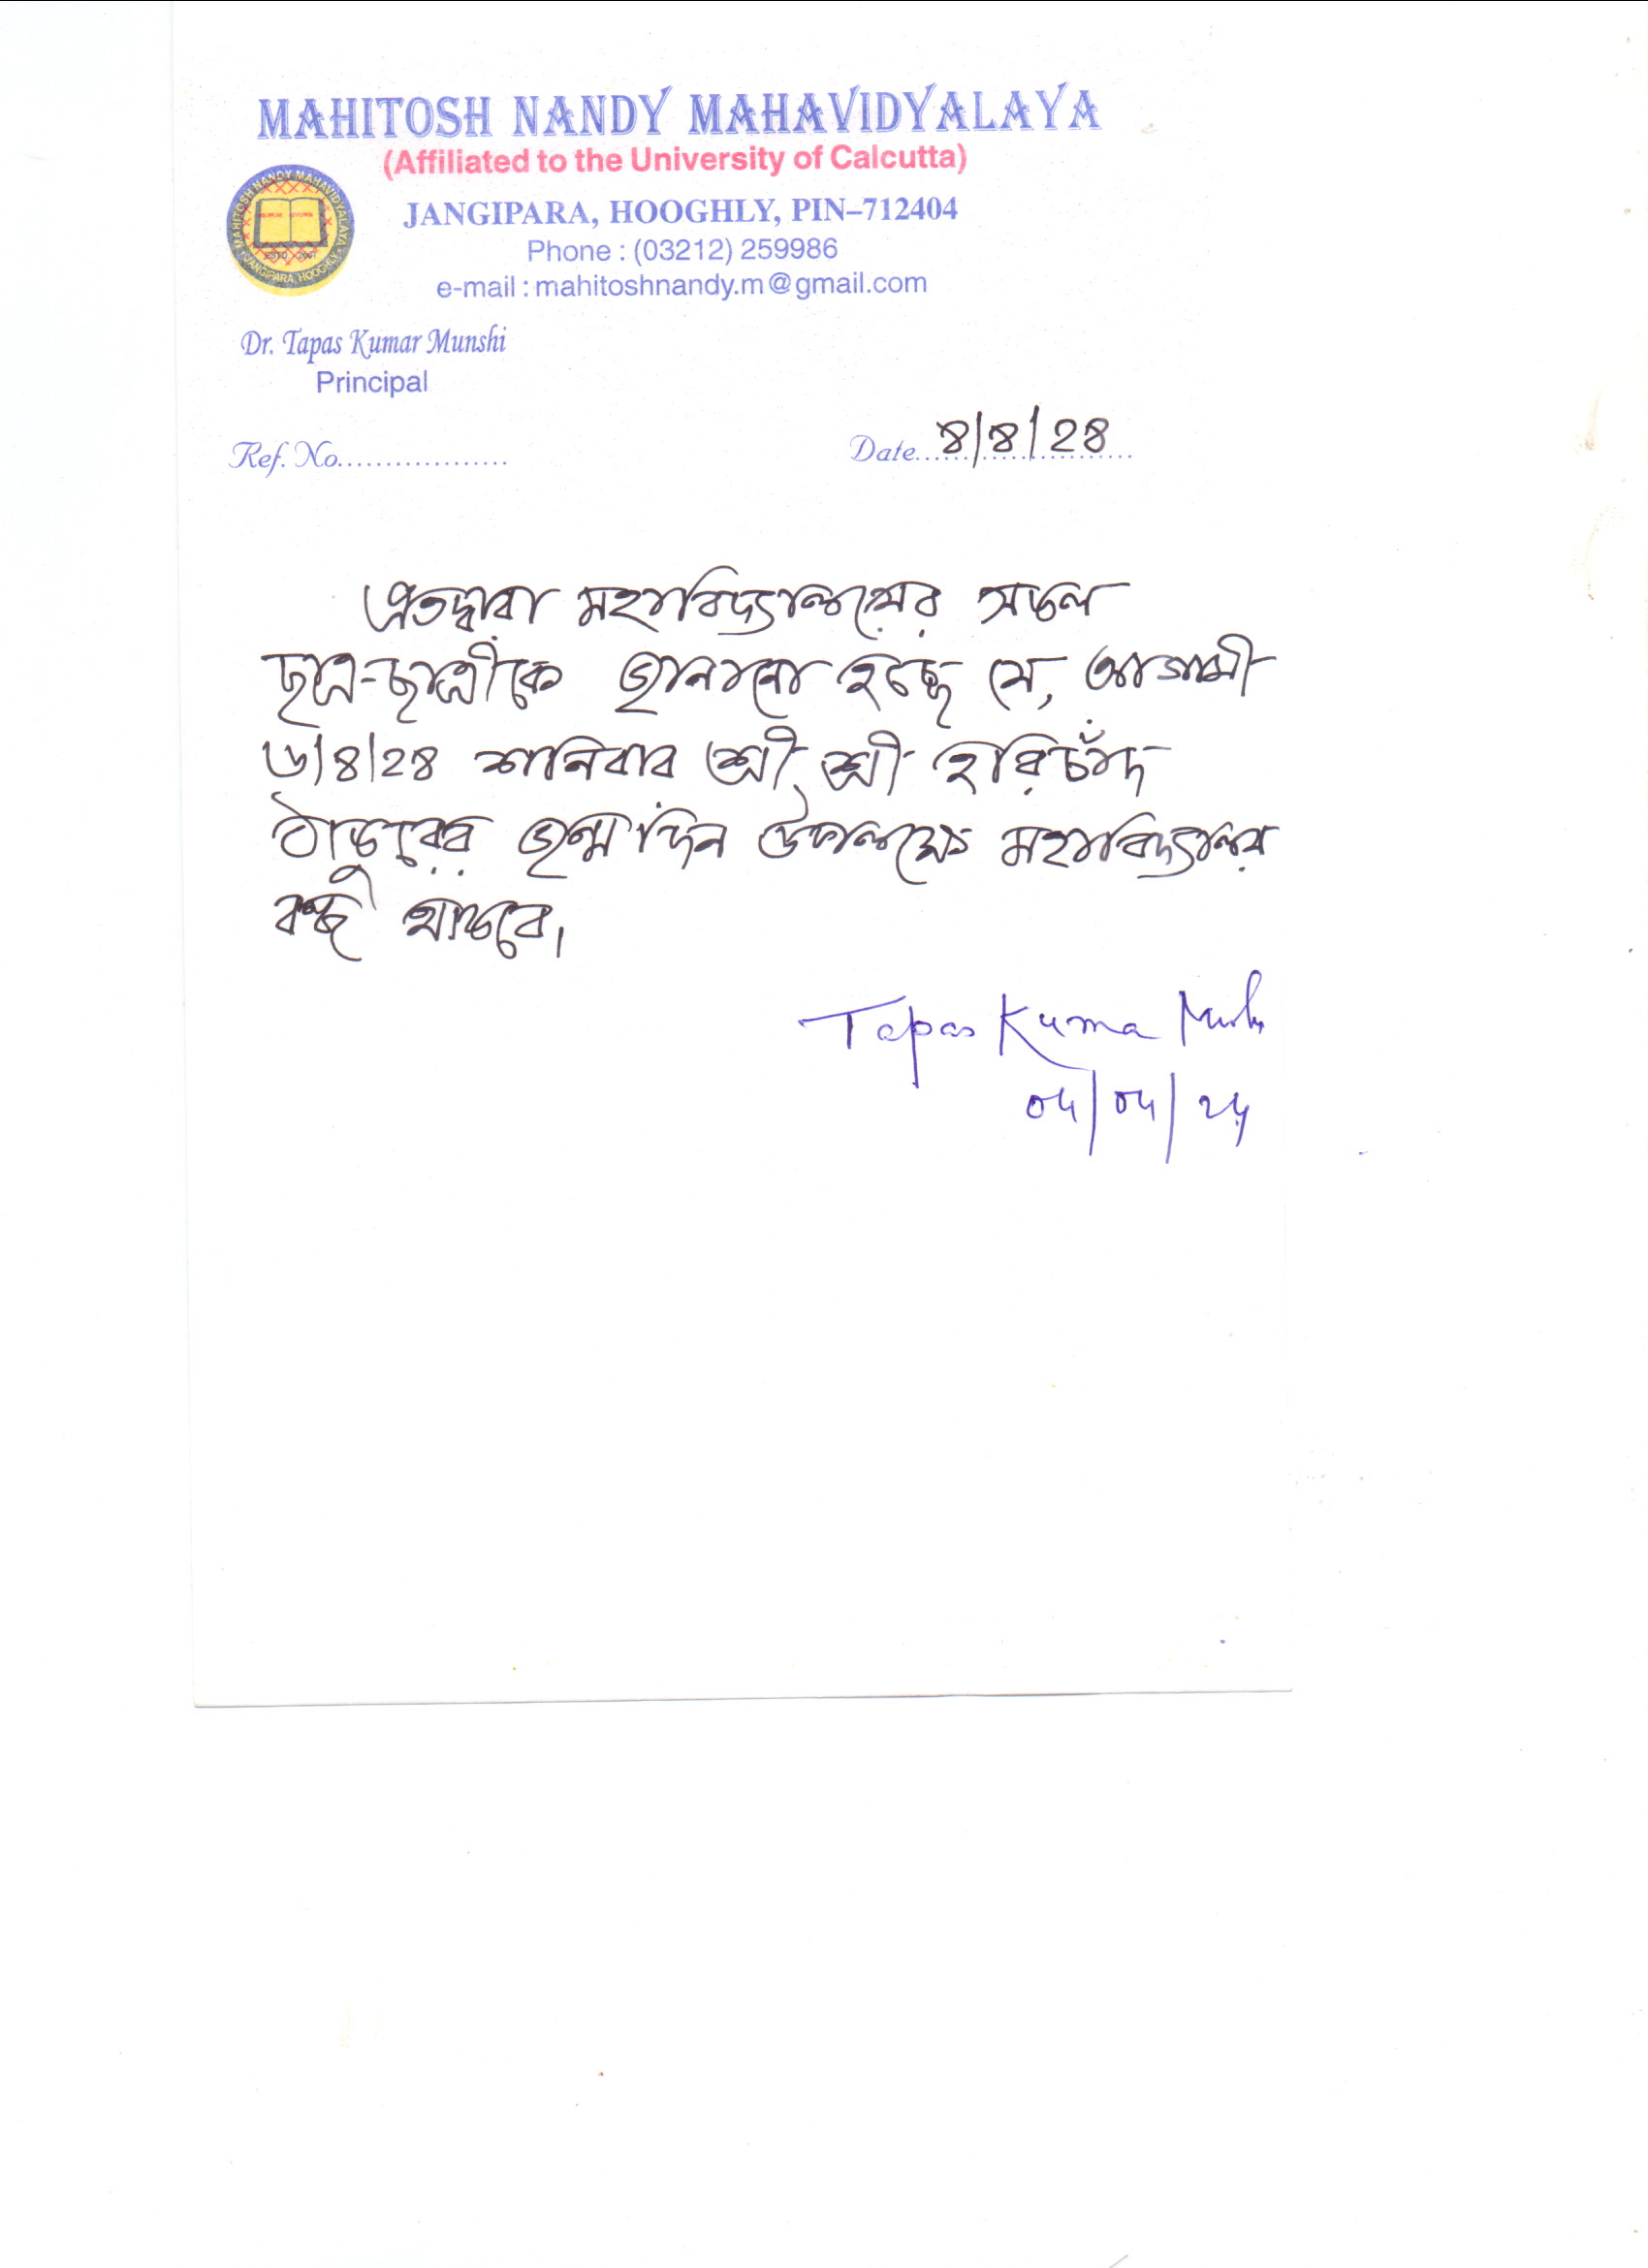 MAHITOSH NANDY MAHAVIDYALAYA
(Affiliated to the University of Calcutta)
MAHITOSH NANDY MAHAVIDYALAYA
ESTD. 2007
JANGIPARA, HOOGHLY
JANGIPARA, HOOGHLY, PIN–712404
Phone : (03212) 259986
e-mail : mahitoshnandy.m@gmail.com
Dr. Tapas Kumar Munshi
Principal
Ref. No..................
Date..৪/৪/২৪
এতদ্বারা মহাবিদ্যালয়ের সকল
ছাত্র-ছাত্রীকে জানানো হচ্ছে যে, আগামী
৬/৪/২৪ শনিবার শ্রী শ্রী হরিচাঁদ
ঠাকুরের জন্মদিন উপলক্ষে মহাবিদ্যালয়
বন্ধ থাকবে।
Tapas Kumar Munshi
04/04/24